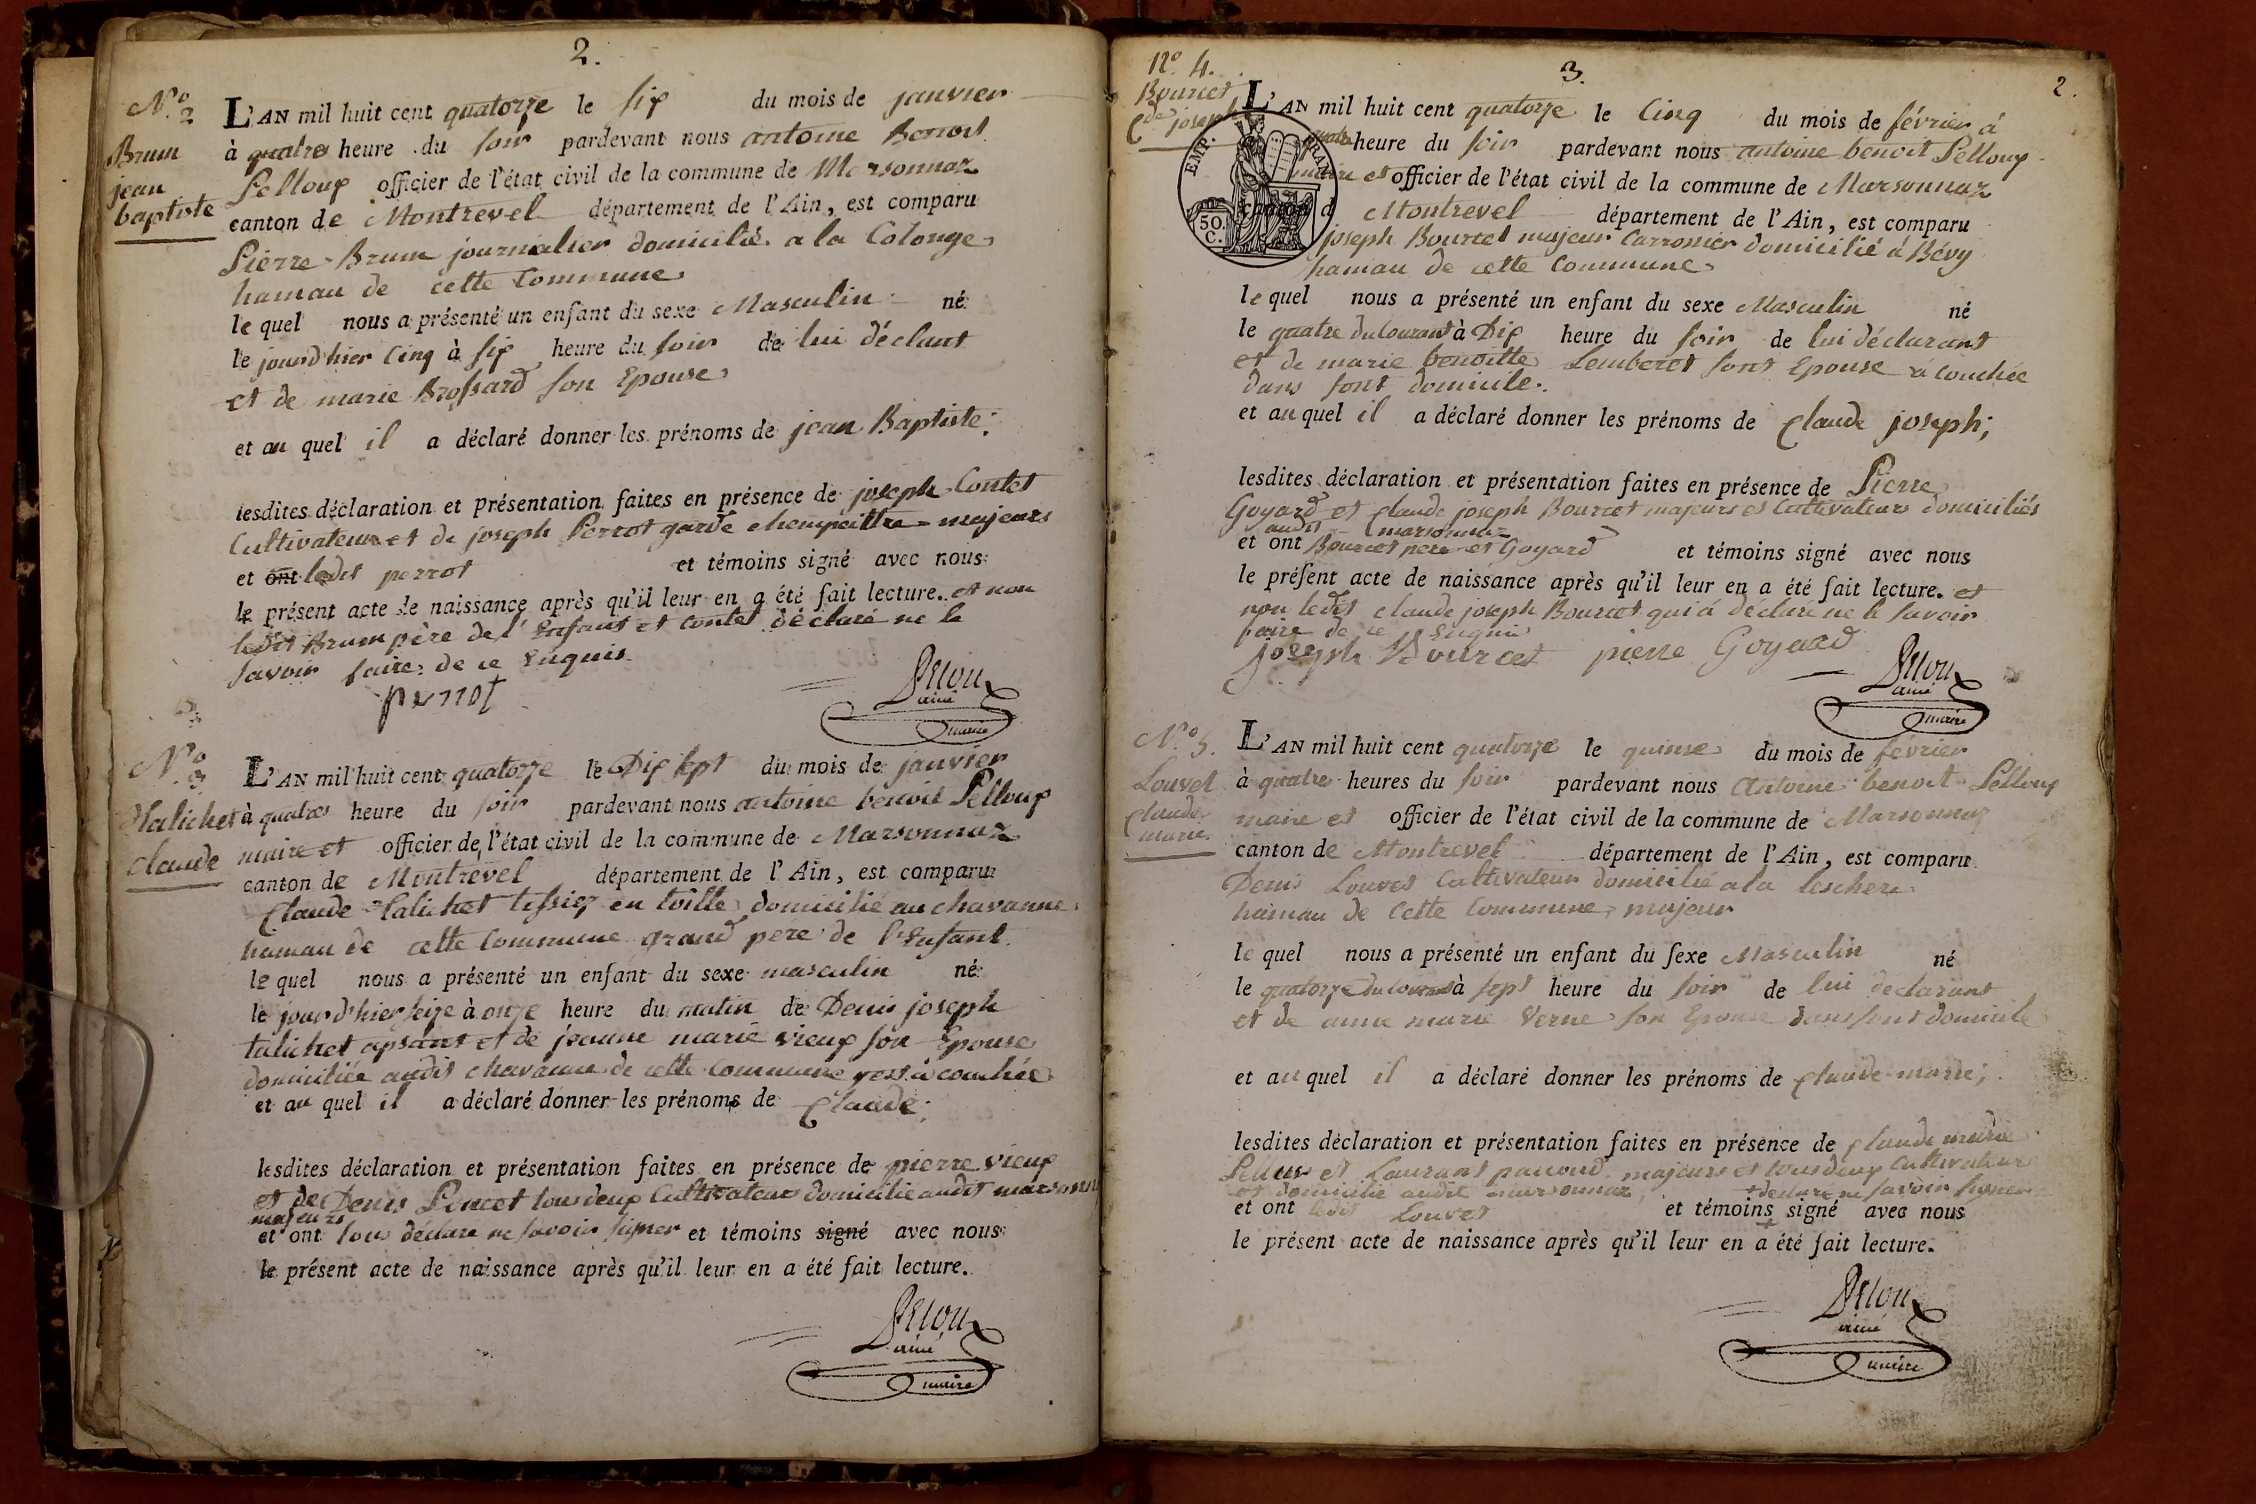 2.
N.º 2
Brum
jean
baptiste
L'AN mil huit cent quatorze le six du mois de janvier
à quatre heure du soir pardevant nous antoine Benoit
Pelloux officier de l'état civil de la commune de Marsonnaz
canton de Montrevel département de l'Ain, est comparu
Pierre Brum journalier domicilié a la Colonge
hamau de cette Commune
le quel nous a présenté un enfant du sexe Masculin né
le jourd'hier Cinq à six heure du soir de lui déclant
et de marie Brossard son Epouse
et au quel il a déclaré donner les prénoms de jean Baptiste;
lesdites déclaration et présentation faites en présence de joseph Contet
Cultivateur et de joseph Perrot garde champaittre majeurs
et ont ledit perrot et témoins signé avec nous
le présent acte de naissance après qu'il leur en a été fait lecture. et non
ledit Brum père de l'Enfant et contet déclaré ne le
savoir faire de ce Enquis
perrot
Pelloux
ainé
maire
N.º 3
Talichet
Claude
L'AN mil huit cent quatorze le Dix sept du mois de janvier
à quatre heure du soir pardevant nous antoine benoit Pelloux
maire et officier de l'état civil de la commune de Marsonnaz
canton de Montrevel département de l'Ain, est comparu
Claude Talichet tissier en toille domicilié au chavanne
hamau de cette Commune grand pere de l'Enfant
le quel nous a présenté un enfant du sexe masculin né
le jourd'hier seize à onze heure du matin de Denis joseph
talichet apsant et de jeanne marie vieux son Epouse
domiciliée audit chavanne de cette Commune acouchée
et au quel il a déclaré donner les prénoms de Claude;
lesdites déclaration et présentation faites en présence de pierre vieux
et de Denis Poncet tous deux Cultivateurs domicilié audit marsonn
majeurs
et ont tous déclare ne savoir signer et témoins signé avec nous
le présent acte de naissance après qu'il leur en a été fait lecture.
Pelloux
ainé
maire
3.
2.
Nº. 4.
Bourcet
Cde joseph
EMP. FRAN.
50. C.
L'AN mil huit cent quatorze le Cinq du mois de février à
quatre heure du soir pardevant nous antoine benoit Pelloux
maire et officier de l'état civil de la commune de Marsonnaz
canton d Montrevel département de l'Ain, est comparu
joseph Bourcet majeur Carronier domicilié à Bévy
hamau de cette Commune
le quel nous a présenté un enfant du sexe Masculin né
le quatre du Courant à Dix heure du soir de lui déclarant
et de marie benoitte Lemberet sont Epouse acouchée
dans sont domicile.
et au quel il a déclaré donner les prénoms de Claude joseph;
lesdites déclaration et présentation faites en présence de Pierre
Goyard et Claude joseph Bourcet majeurs et Cultivateurs domiciliés
audit marsonnaz
et ont Bourcet pere et Goyard et témoins signé avec nous
le présent acte de naissance après qu'il leur en a été fait lecture. et
non ledit claude joseph Bourcet qui a déclaré ne le savoir
faire de ce Enquis
joseph Bourcet pierre Goyard
Pelloux
ainé
maire
N.º 5.
Louvet
Claude
marie
L'AN mil huit cent quatorze le quinse du mois de février
à quatre heures du soir pardevant nous Antoine benoit Pelloux
maire et officier de l'état civil de la commune de Marsonnaz
canton de Montrevel département de l'Ain, est comparu
Denis Louvet Cultivateur domicilié a la leschere
hamau de Cette Commune majeur
le quel nous a présenté un enfant du sexe Masculin né
le quatorze du courant à sept heure du soir de lui declarant
et de anne marie Verne son Epouse dans sont domicile
et au quel il a déclaré donner les prénoms de Claude marie;
lesdites déclaration et présentation faites en présence de Claude marie
et Laurant majeurs et tous deux Cultivateurs
et domicilié audit marsonnaz, + déclaré ne savoir signer
et ont ledit Louvet et témoins signé avec nous
+
le présent acte de naissance après qu'il leur en a été fait lecture.
Pelloux
ainé
maire